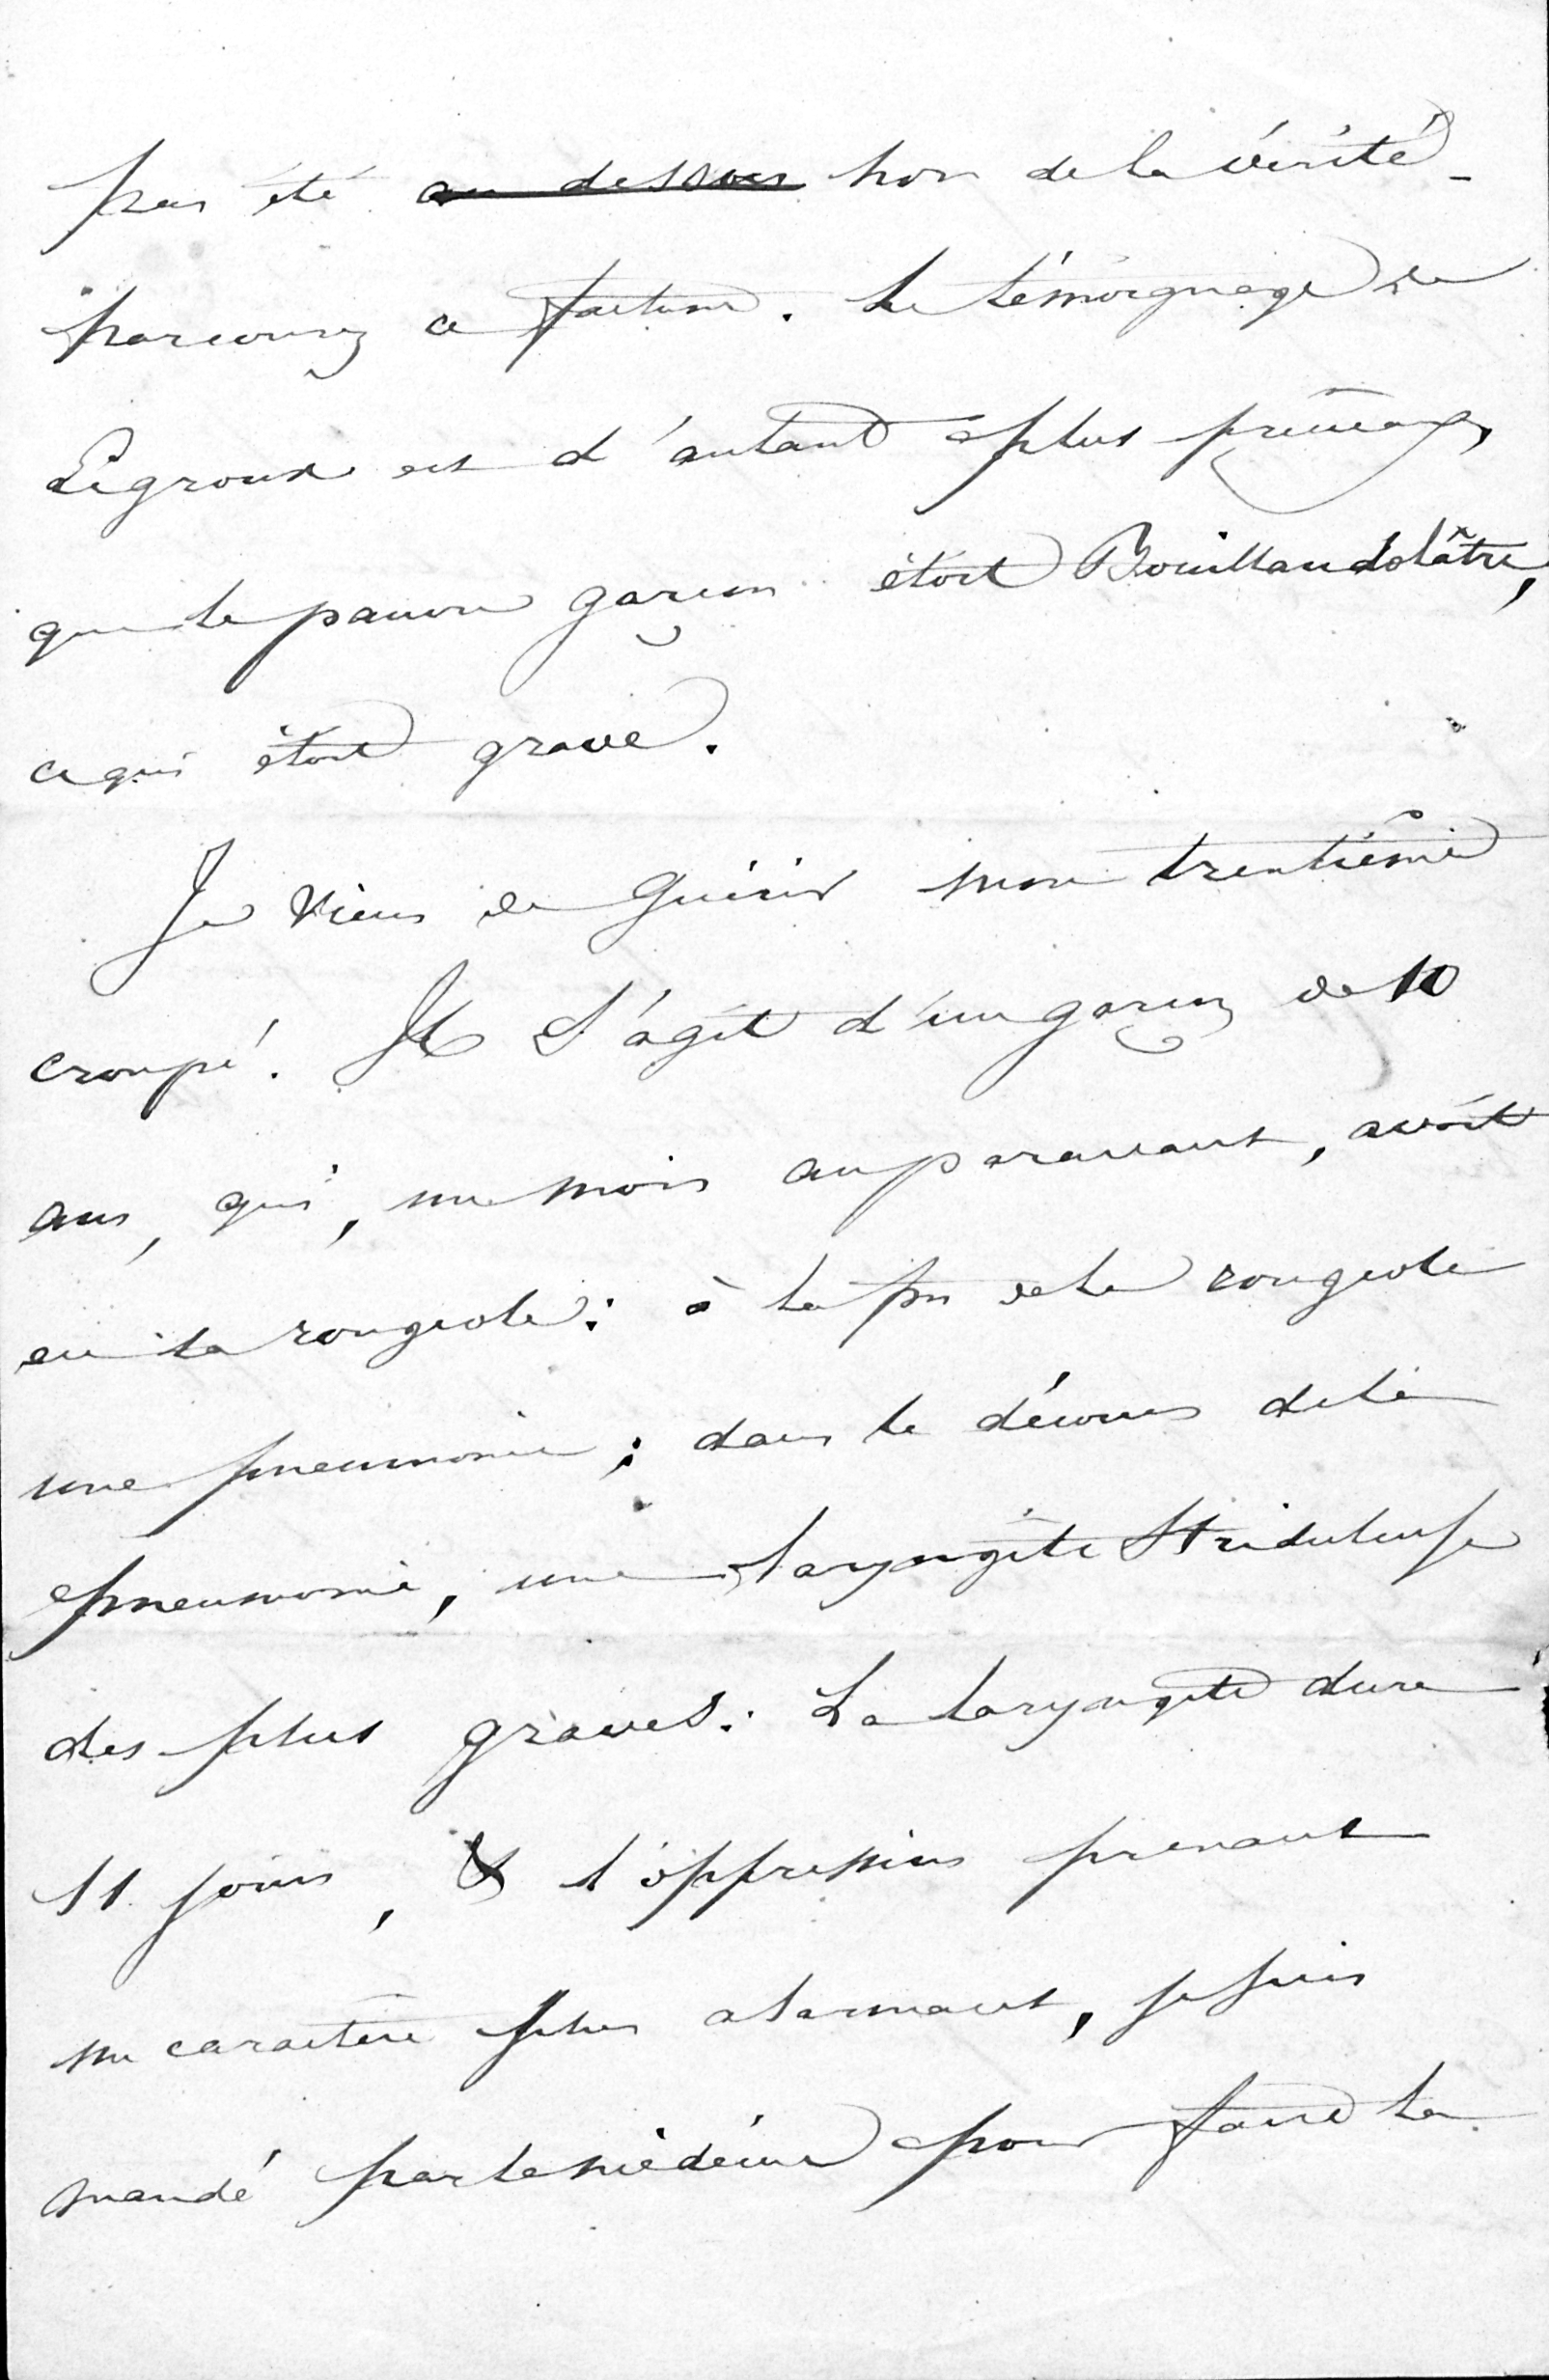 pas été ~~au dessous~~ hors de la vérité -
parcourez ce factum. Le témoignage de
Legroux est d'autant plus précieux,
que le pauvre garçon étoit Bouillaudolâtre,
ce qui étoit grave.
Je viens de guérir mon trentième
croupé. Il s'agit d'un garçon de 10
ans, qui, un mois auparavant, avoit
eu la rougeole : à la fin de la rougeole
une pneumonie ; dans le décours de la
pneumonie, une laryngite striduleuse
des plus graves. La laryngite dure
11 jours, & l'oppression prenant
un caractère plus alarmant, je suis
mandé par le médecin pour faire la